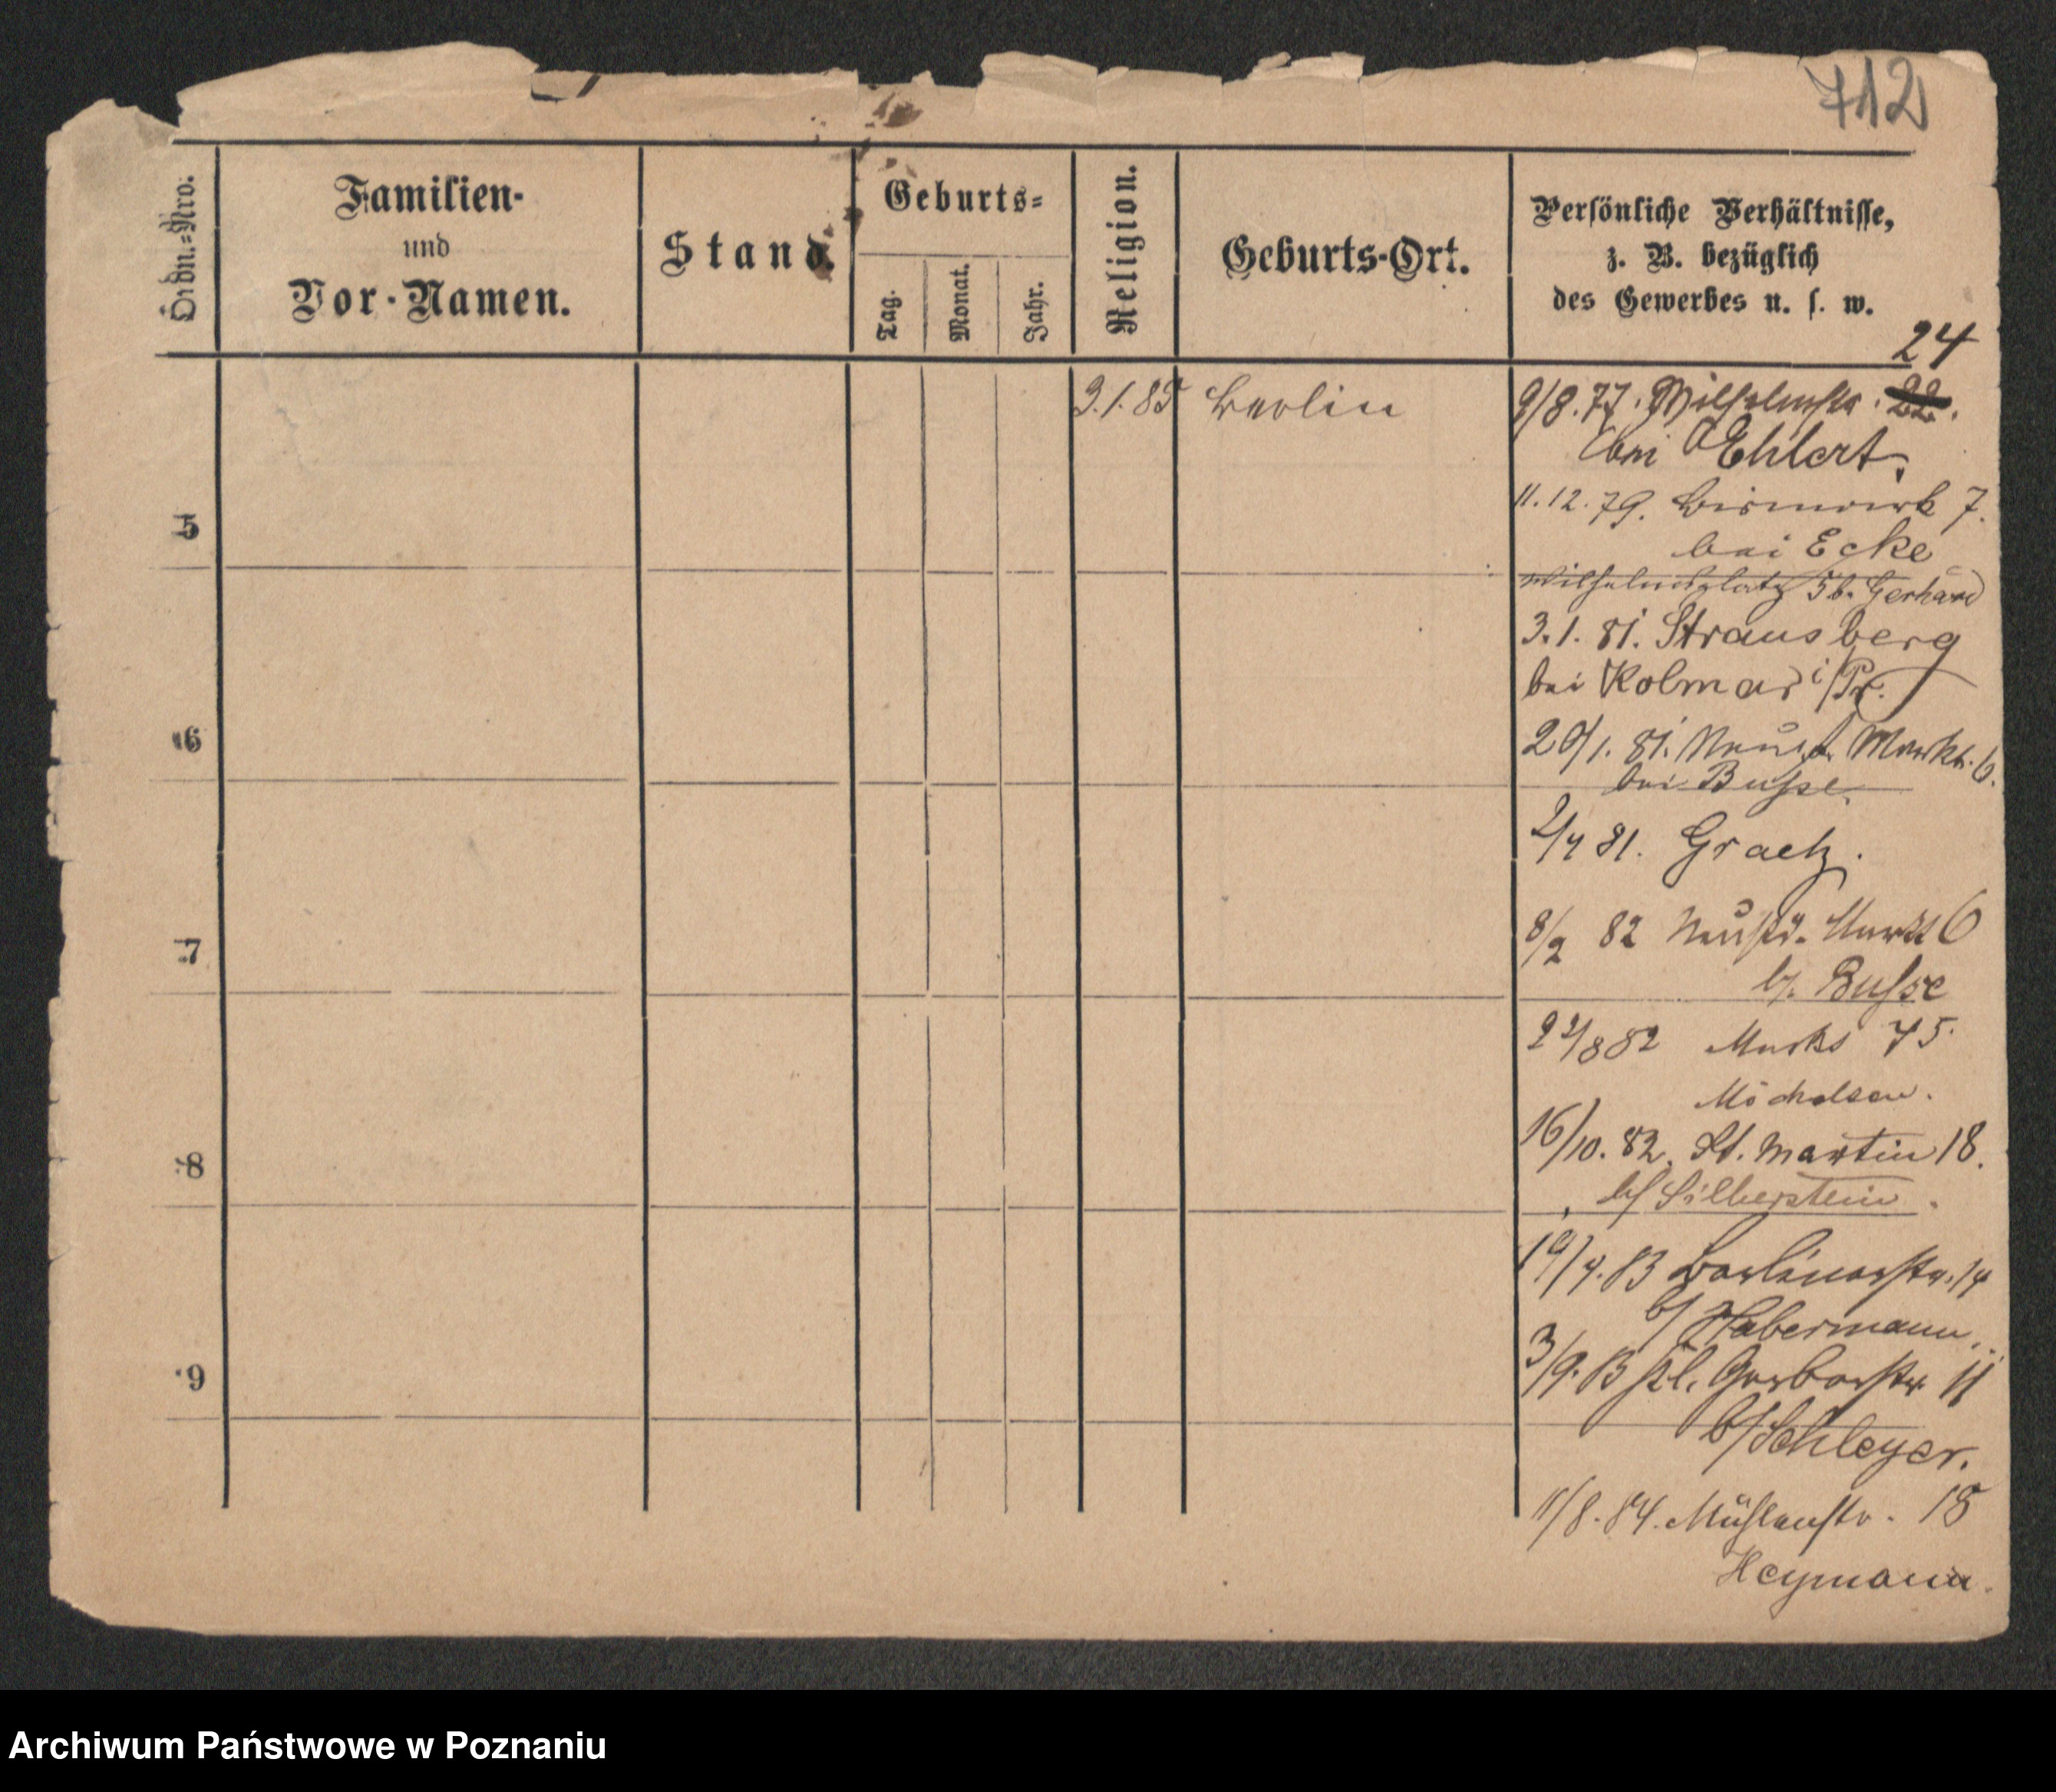 712
Ordn.=Nro.
Familien-
und
Vor-Namen.
Stand.
Geburts=
Tag.
Monat.
Jahr.
Religion.
Geburts-Ort.
Persönliche Verhältnisse,
z. B. bezüglich
des Gewerbes u. s. w.
24
3.1.85 Berlin
9/8.77. Wilhelmstr. 22.
bei Ehlert.
11.12.79. Bismark 7.
bei Ecke
Wilhelmsplatz 5 b. Gerhard
3.1.81. Strausberg
bei Kolmar i/Pr.
29/1.81. Neust. Markt. 6.
bei Busse.
2/4 81. Graetz.
8/2 82 Neust. Markt 6
b/. Busse
22/8 82 Markt 75.
Michelsen.
16/10.82. St. Martin 18.
b/ Silberstein.
19/4.83 Berlinerstr. 14
b/ Habermann.
3/9. 83 kl. Gerberstr 11
b/ Schleyer.
11/8.84. Mühlenstr. 18
Heymann.
5
6
7
8
9
Archiwum Państwowe w Poznaniu